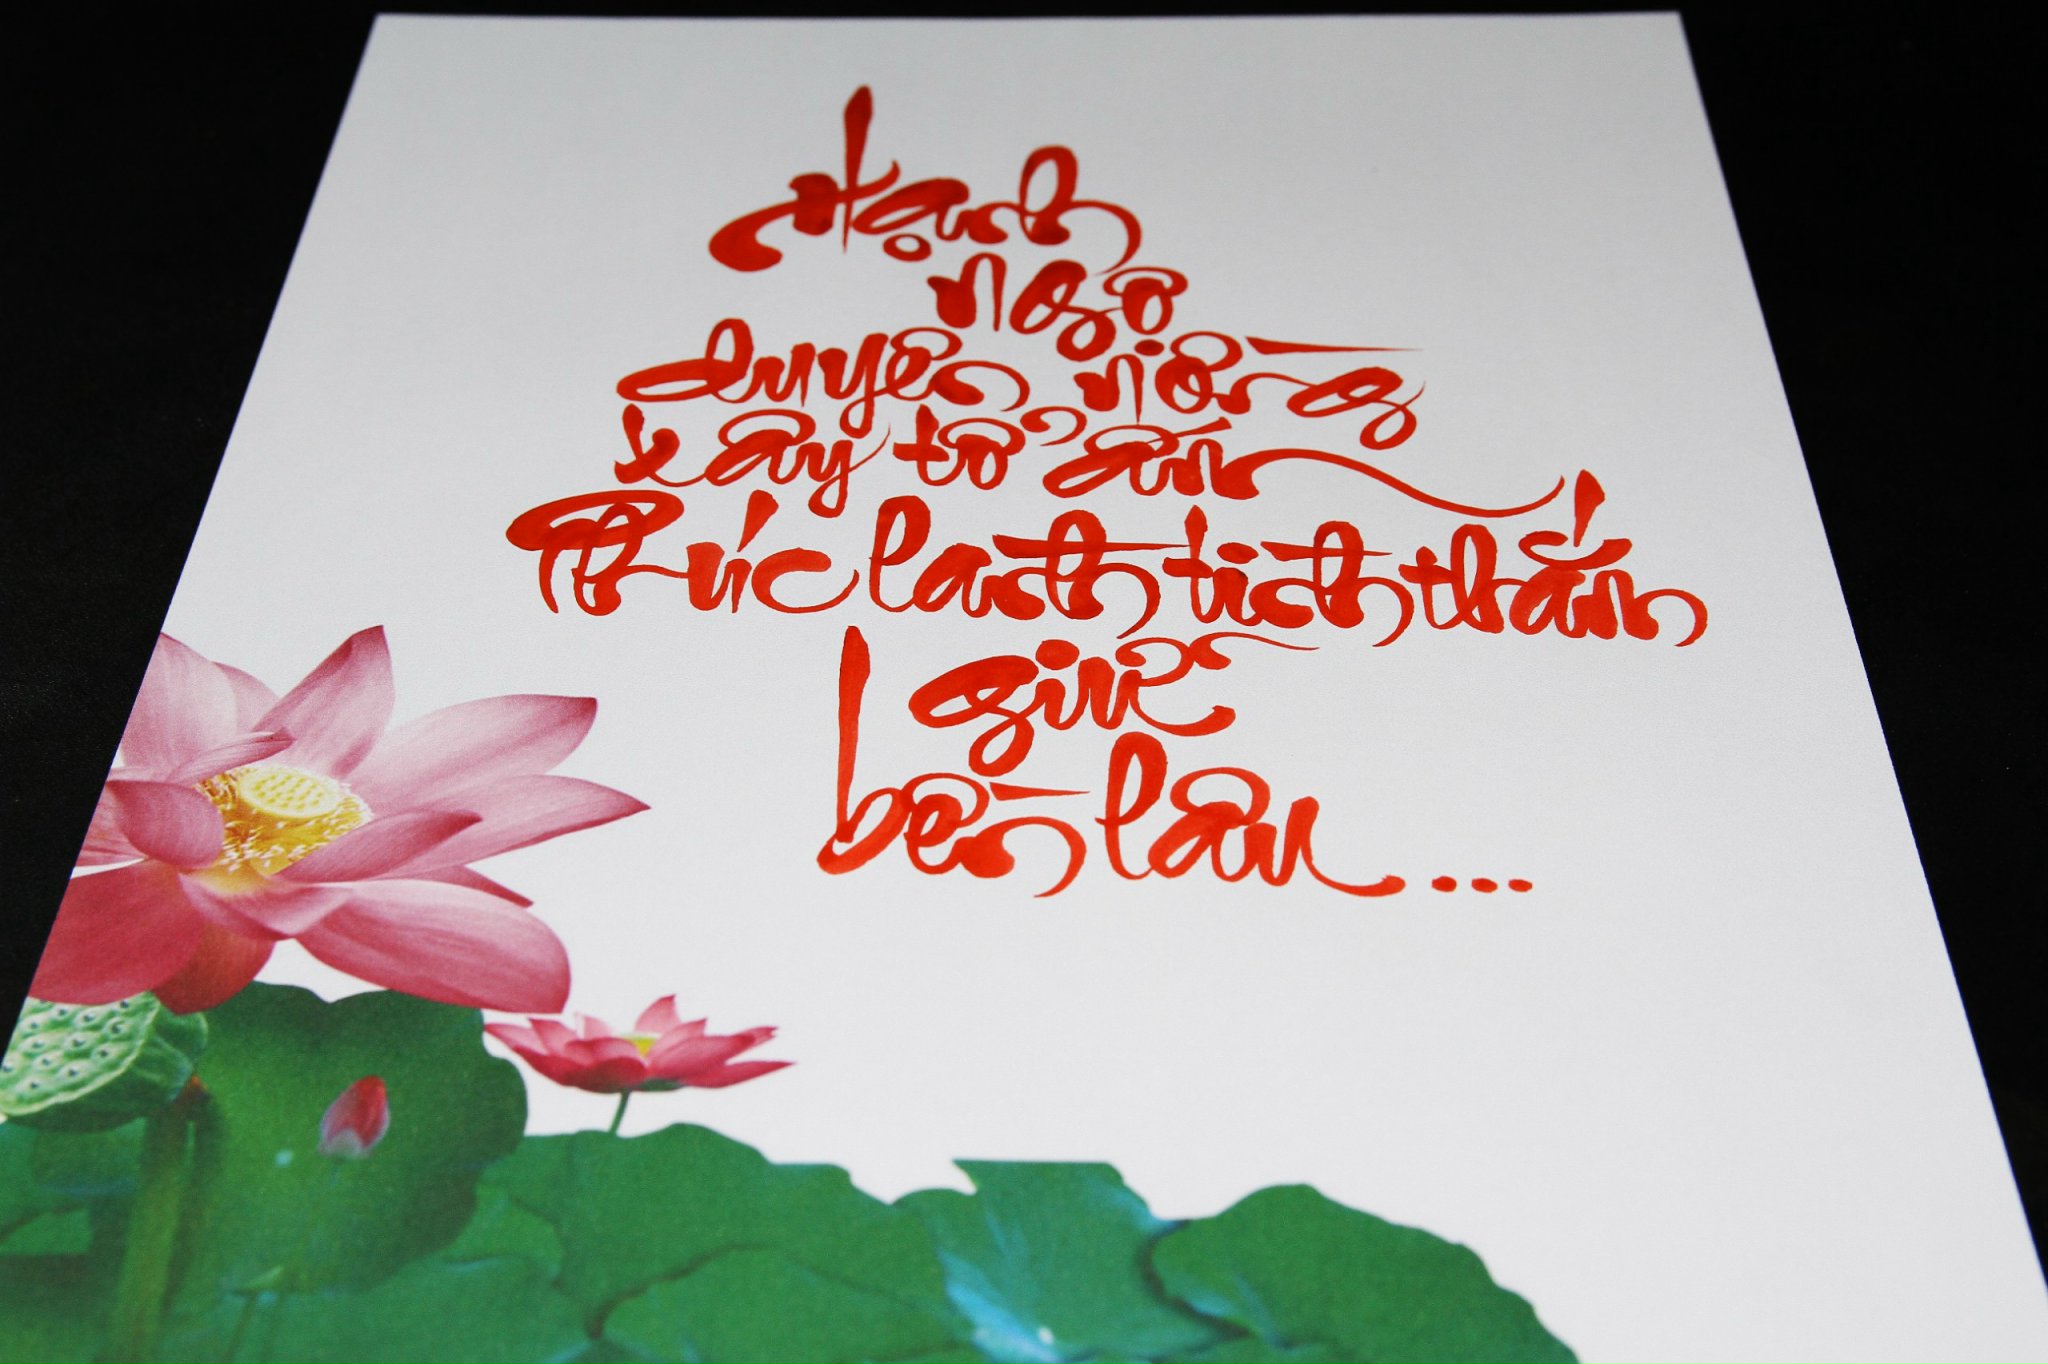 Hạnh
ngộ
duyên nồng
xây tổ ấm
Phúc lành tình thắm
giữ
bền lâu ...